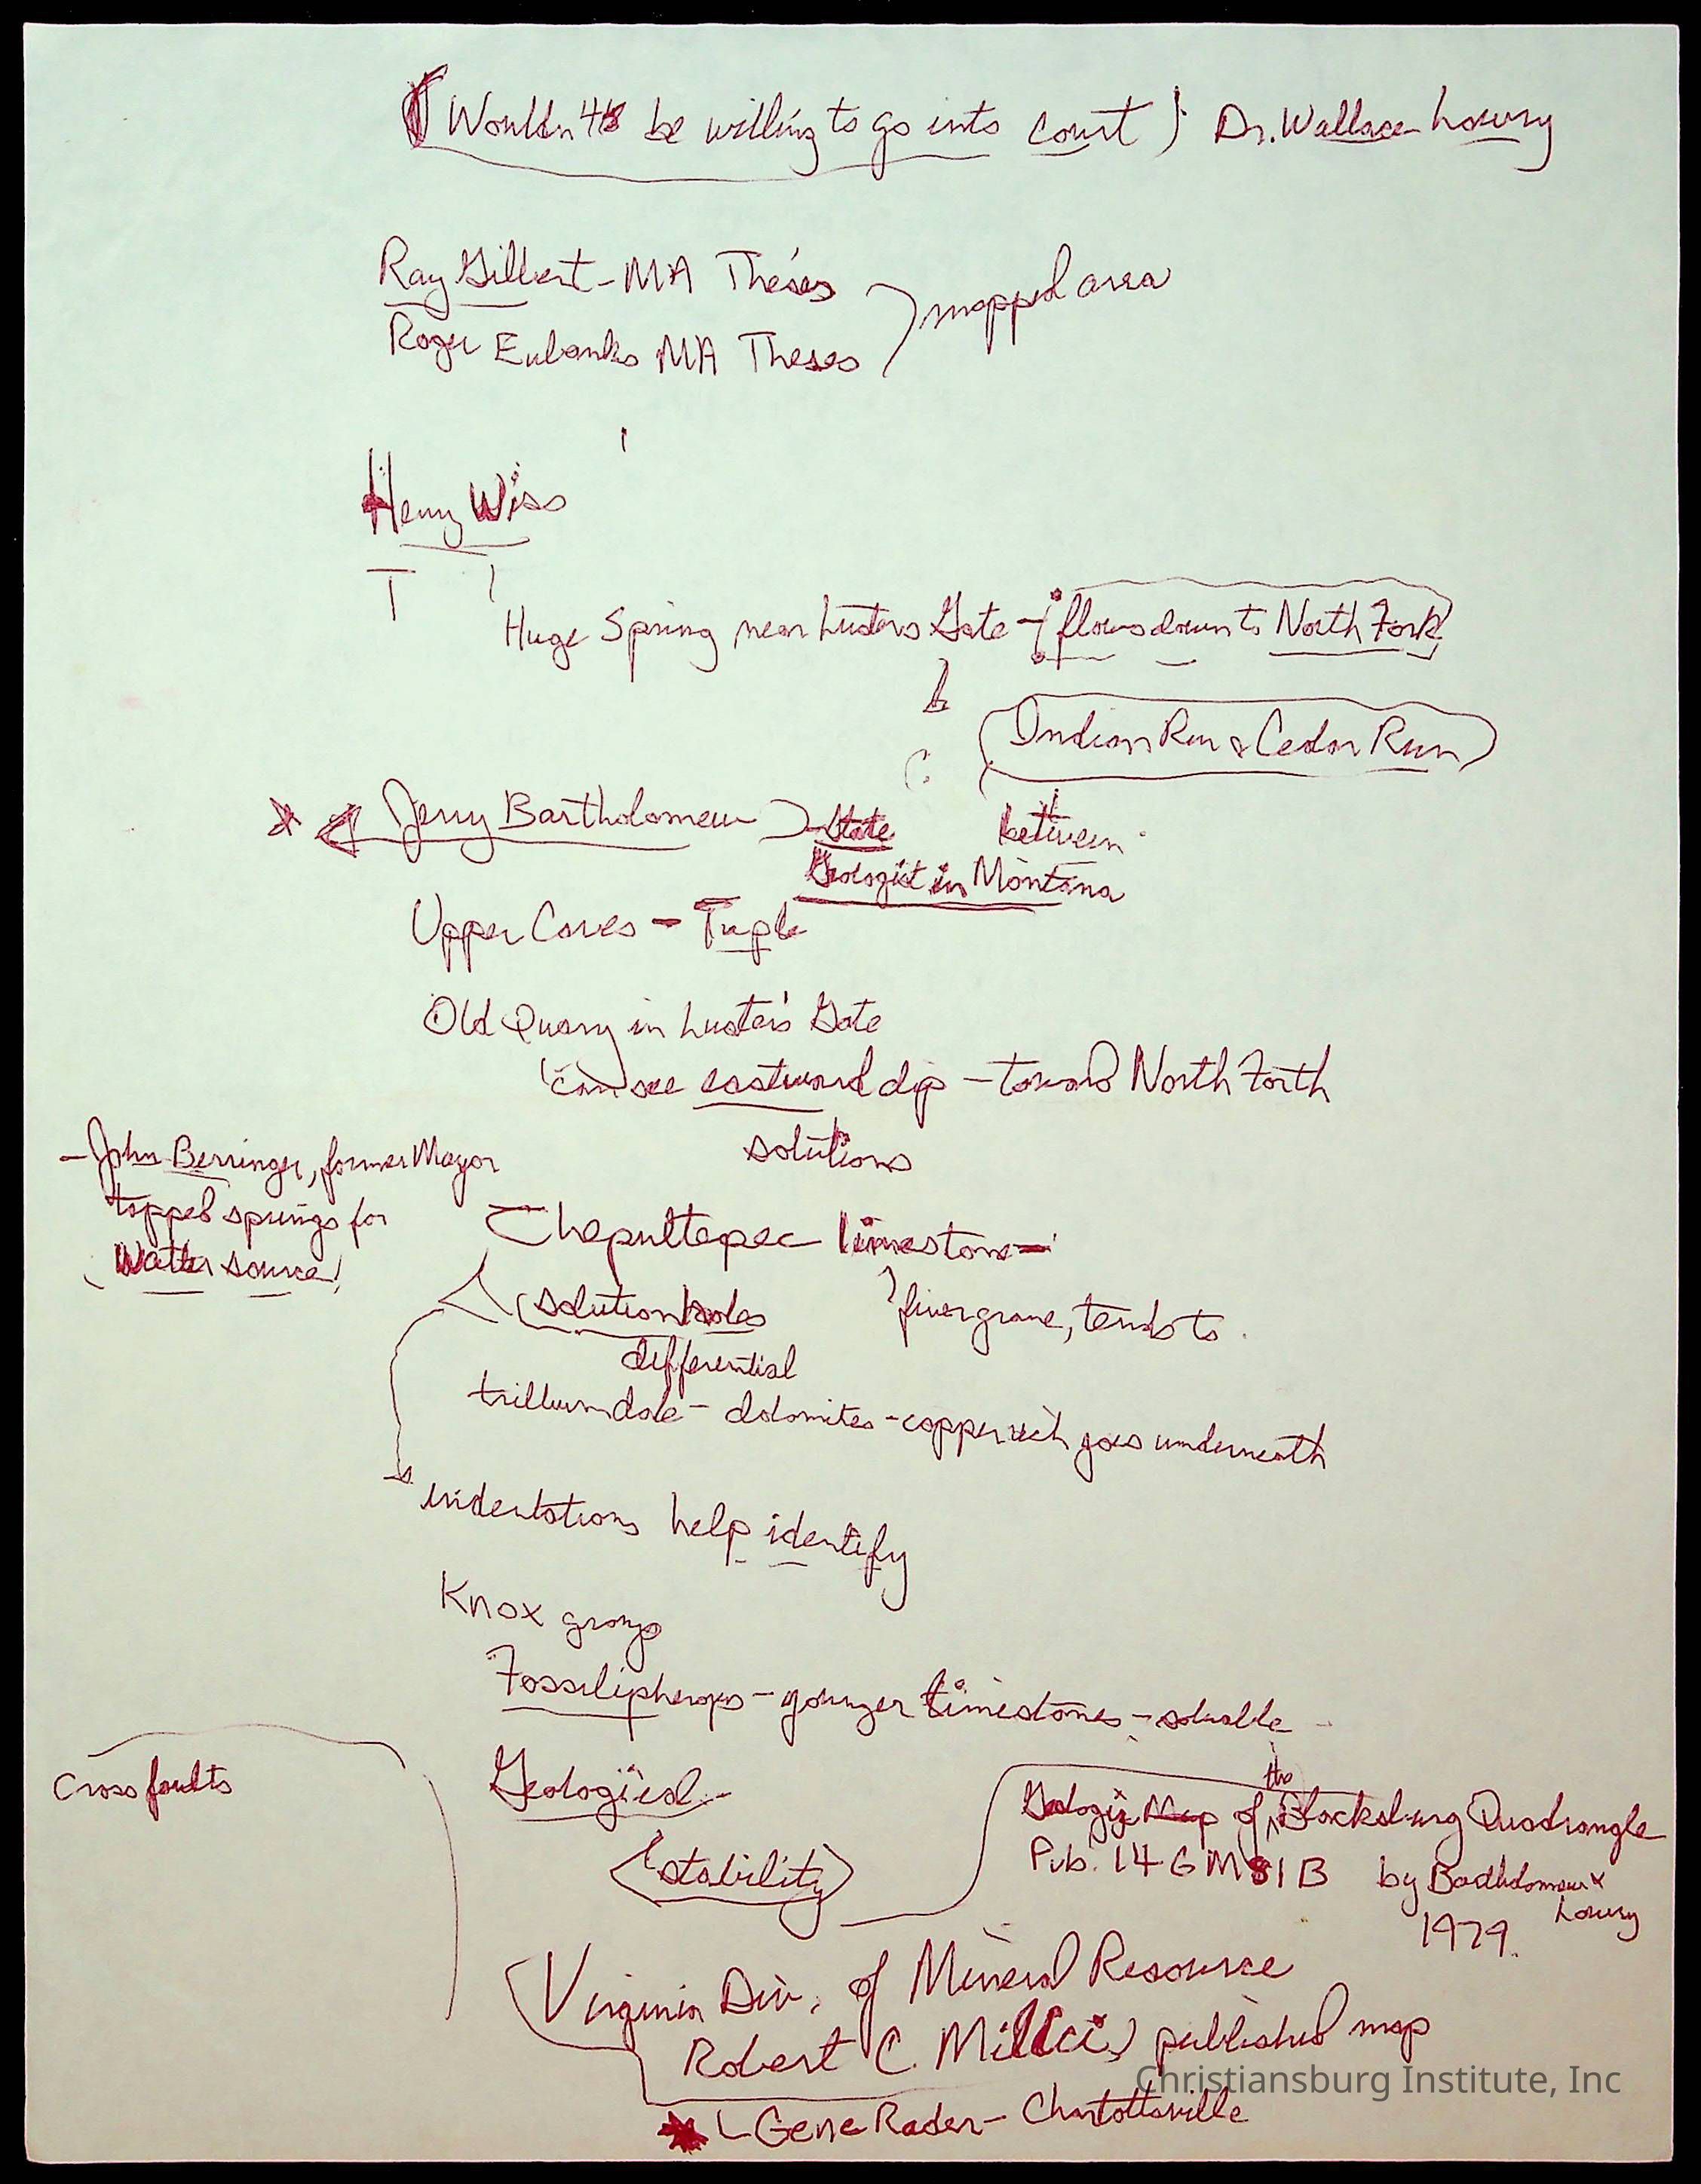 (Wouldn't be willing to go into court) Dr. Wallace Lowry
Ray Gilbert - MA Theses
Roger Eubanks MA Theses
mapped area
Henry Wiss
Huge Spring near Lusters Gate - flows down to North Fork
(Indian Run & Cedar Run)
between
* Jerry Bartholomew - State
Geologist in Montana
Upper Caves - Tuple
Old Quary in Luster's Gate
can see eastward dip - toward North Forth
solutions
- John Berringer, former Mayor
tapped springs for
Watter source!
Chepultepec limestone -
(solution holes
finer grane, tends to
differential
dolomites - copper rich goes underneath
indentations help identify
Knox group
Fossilipherops - younger limestones - soluable
Cross faults
Geological -
(stability)
Geologic Map of the Blacksburg Quadrangle
Pub. 14 GM 81 B by Bartholomew &
Lowry
1979.
Virginia Div. of Mineral Resource
Robert C. Milici, published map
Christiansburg Institute, Inc
* Gene Rader - Charlottesville